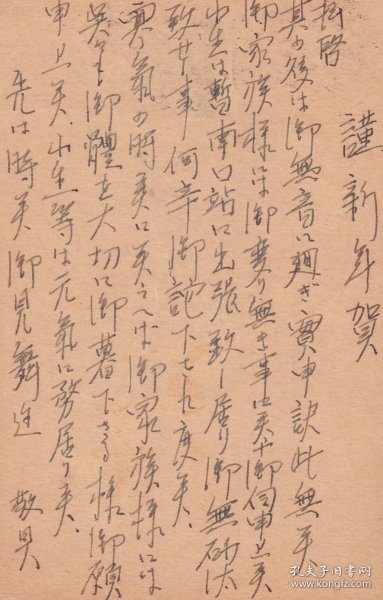 謹新年賀
拝啓
其の後は御無音に過ぎ實申訣此無天
御家族様には御変り無き事に天や御伺申上天
小生は暫南口站に出張致し居り御無砂汰
致せし事何卒御詫下され度天、
寒気の時天に天へば御家族様には
呉々も御體を大切に御暮下さる様御願
申上天、小生等は元氣に務居り天、
先は時天御見舞迄 敬具
孔夫子旧书网
www.kongfz.com